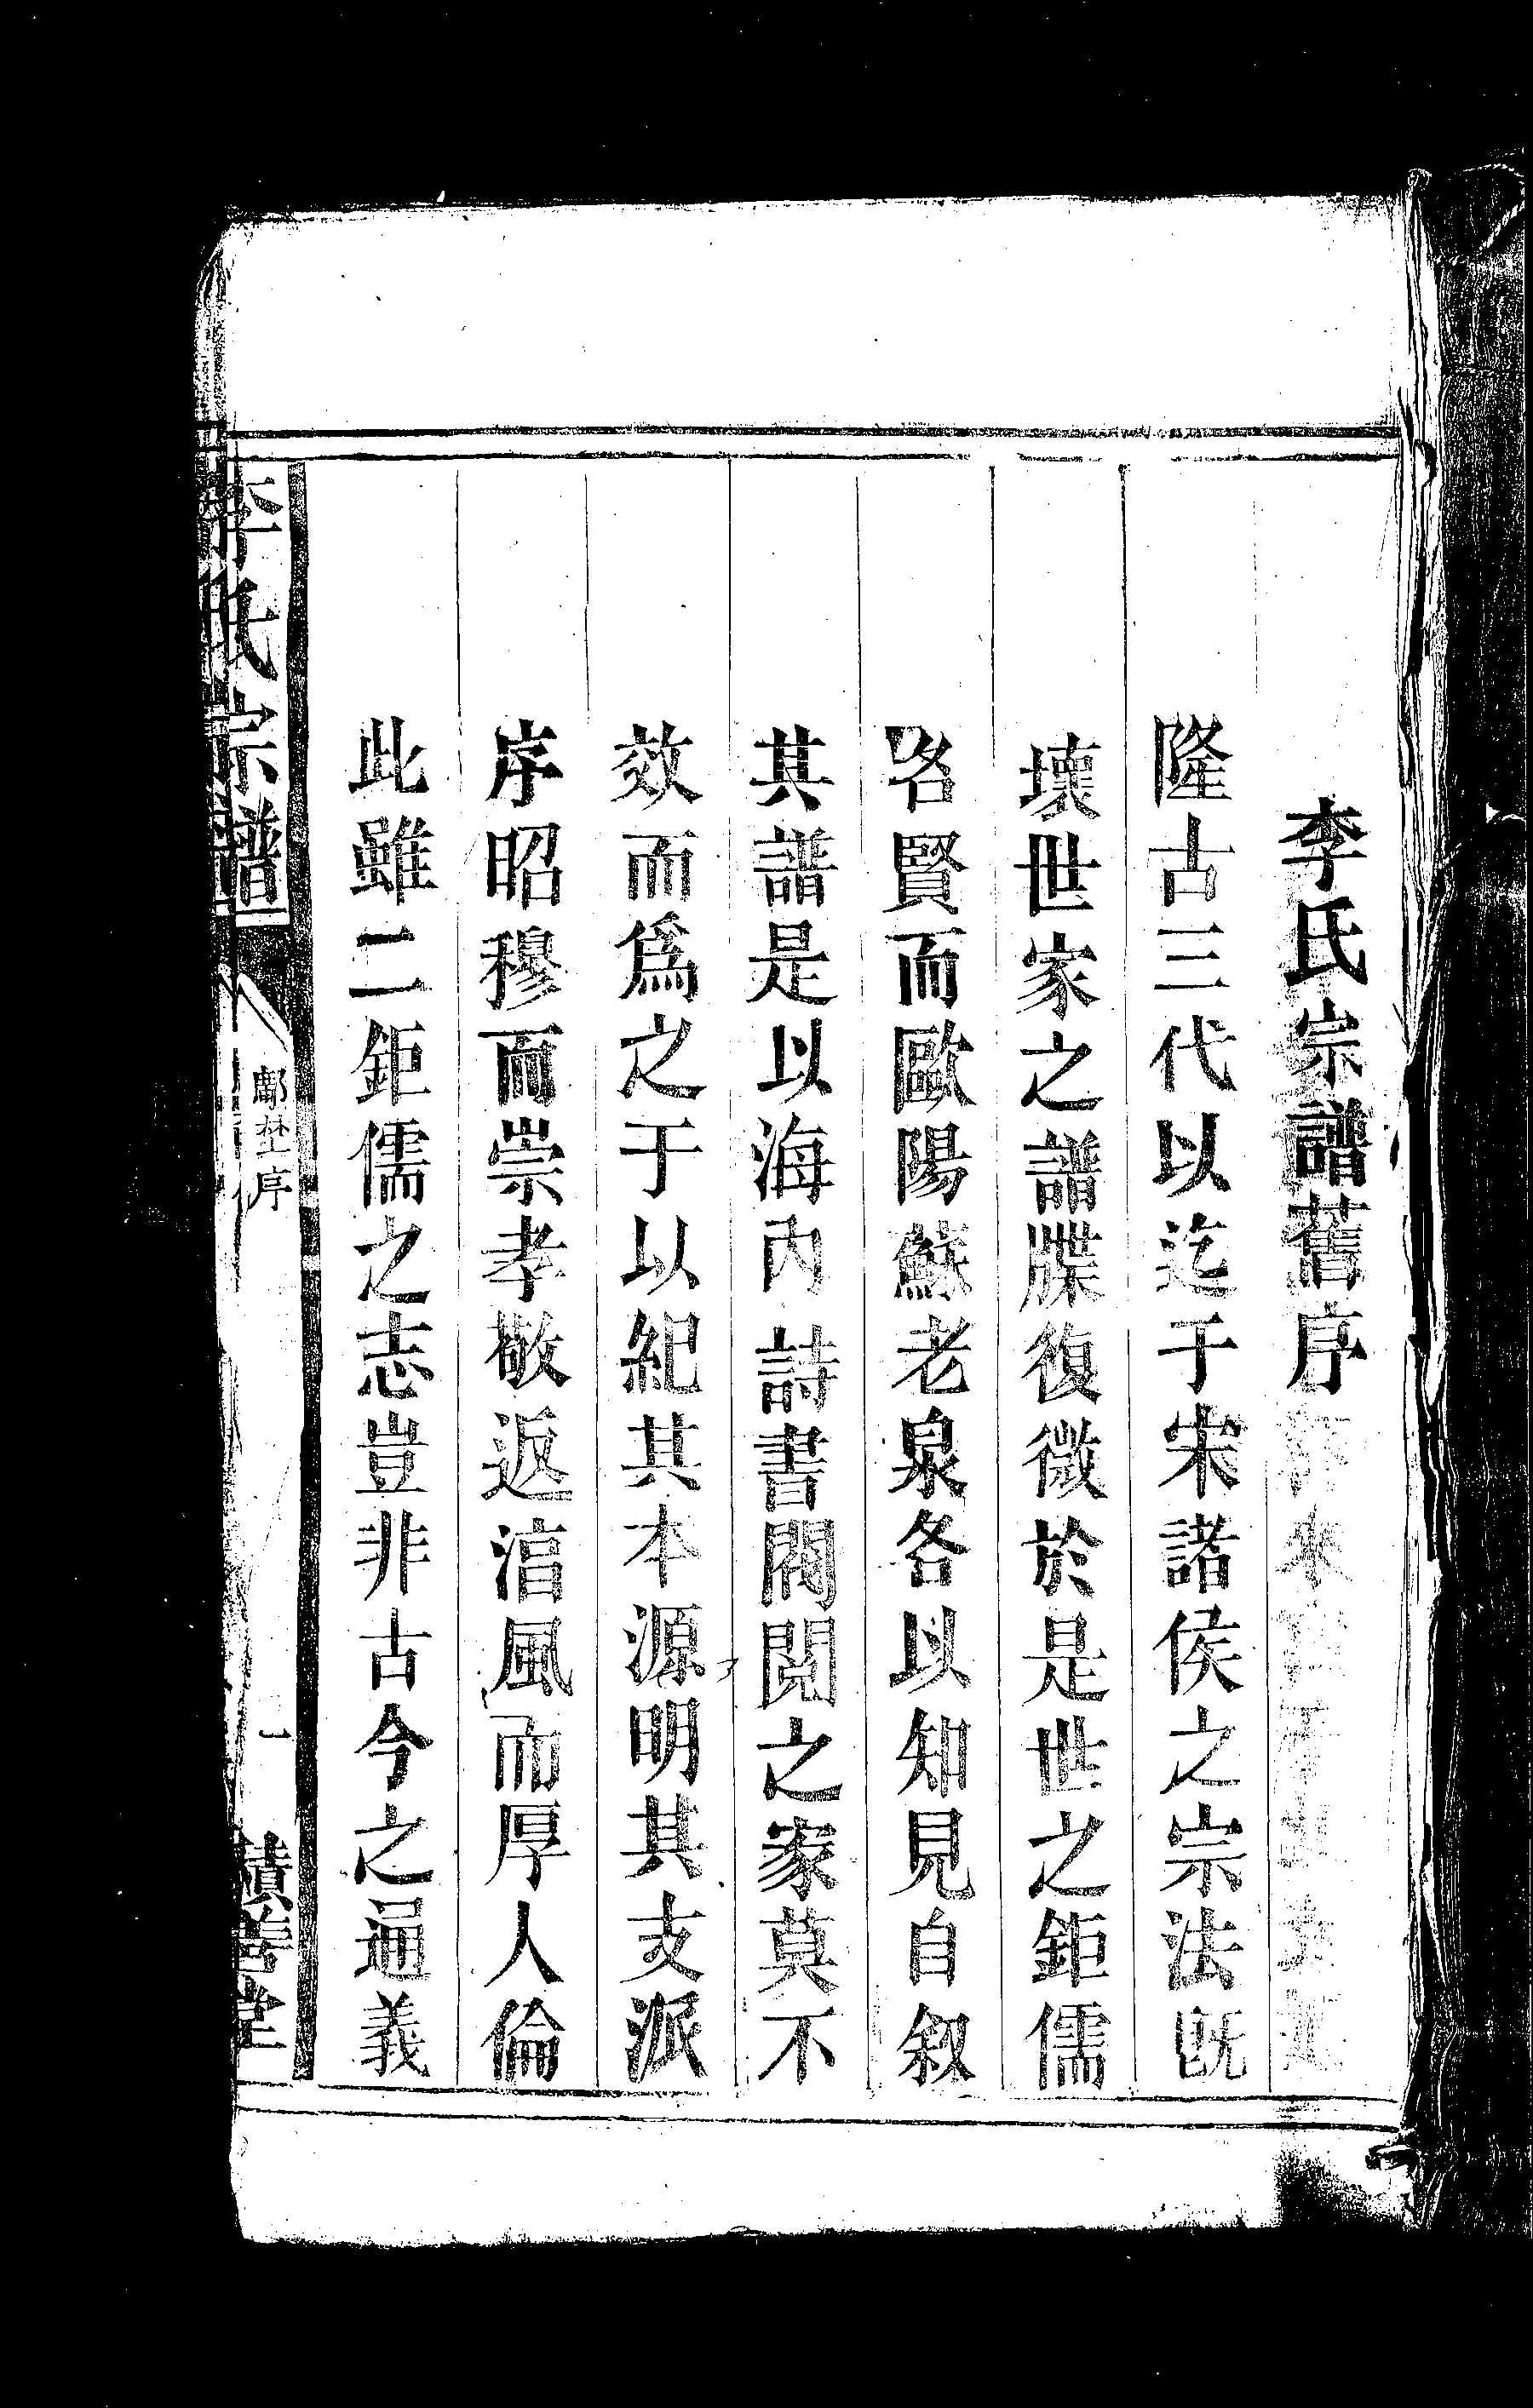 李氏宗譜舊序
隆古三代以迄于宋諸侯之宗法旣
壞世家之譜牒復微於是世之鉅儒
名賢而歐陽蘇老泉各以知見自叙
其譜是以海內詩書閥閱之家莫不
效而爲之于以紀其本源明其支派
序昭穆而崇孝敬返淳風而厚人倫
此雖二鉅儒之志豈非古今之通義
李氏宗譜
序
一
積善堂